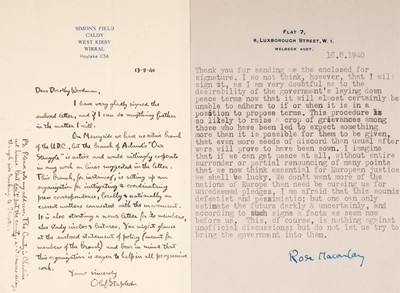 SIMON'S FIELD
CALDY
WEST KIRBY
WIRRAL
Hoylake 1136
13-8-40
Dear Dorothy Woodman,
I have very gladly signed the
enclosed letter, and if I can do anything further
in the matter I will.
On Merseyside we have no active branch
of the U.D.C., but the branch of Acland's "Our
Struggle" is active and would willingly cooperate
in any work on lines suggested in the letter.
This branch, for instance, is setting up an
organization for instigating & coordinating
press correspondence, locally & nationally on
current matters connected with the movement.
It is also starting a news letter for its members,
also study circles & lectures. You might glance
at the enclosed statement of policy (meant for
members of the Branch) and bear in mind that
this organization is eager to help in all progressive
work.
Yours sincerely
Olaf Stapledon
FLAT 7,
8, LUXBOROUGH STREET, W. 1.
WELBECK 4407.
16.8.1940
Thank you for sending me the enclosed for
signature. I do not think, however, that I will
sign it, as I am very doubtful as to the
desirability of the government's laying down
peace terms now that it will almost certainly be
unable to adhere to if or when it is in a
position to propose terms. This procedure is
so likely to raise a crop of grievances among
those who have been led to expect something
more than it is possible for them to be given,
that even more seeds of discord than usual after
wars will prove to have been sown. I imagine
that if we can get peace at all, without entire
surrender or partial renouncing of many points
that we now think essential for European justice
we shall be lucky. We don't want more of the
nations of Europe than need be cursing us for
unredeemed pledges. I am afraid that this sounds
defeatist and pessimistic; but one can only
estimate the future darkly & uncertainly, and
according to such signs & facts as seem now
before us. This, of course, is nothing against
unofficial discussions; but do not let us try to
bring the government into them.
Rose Macaulay